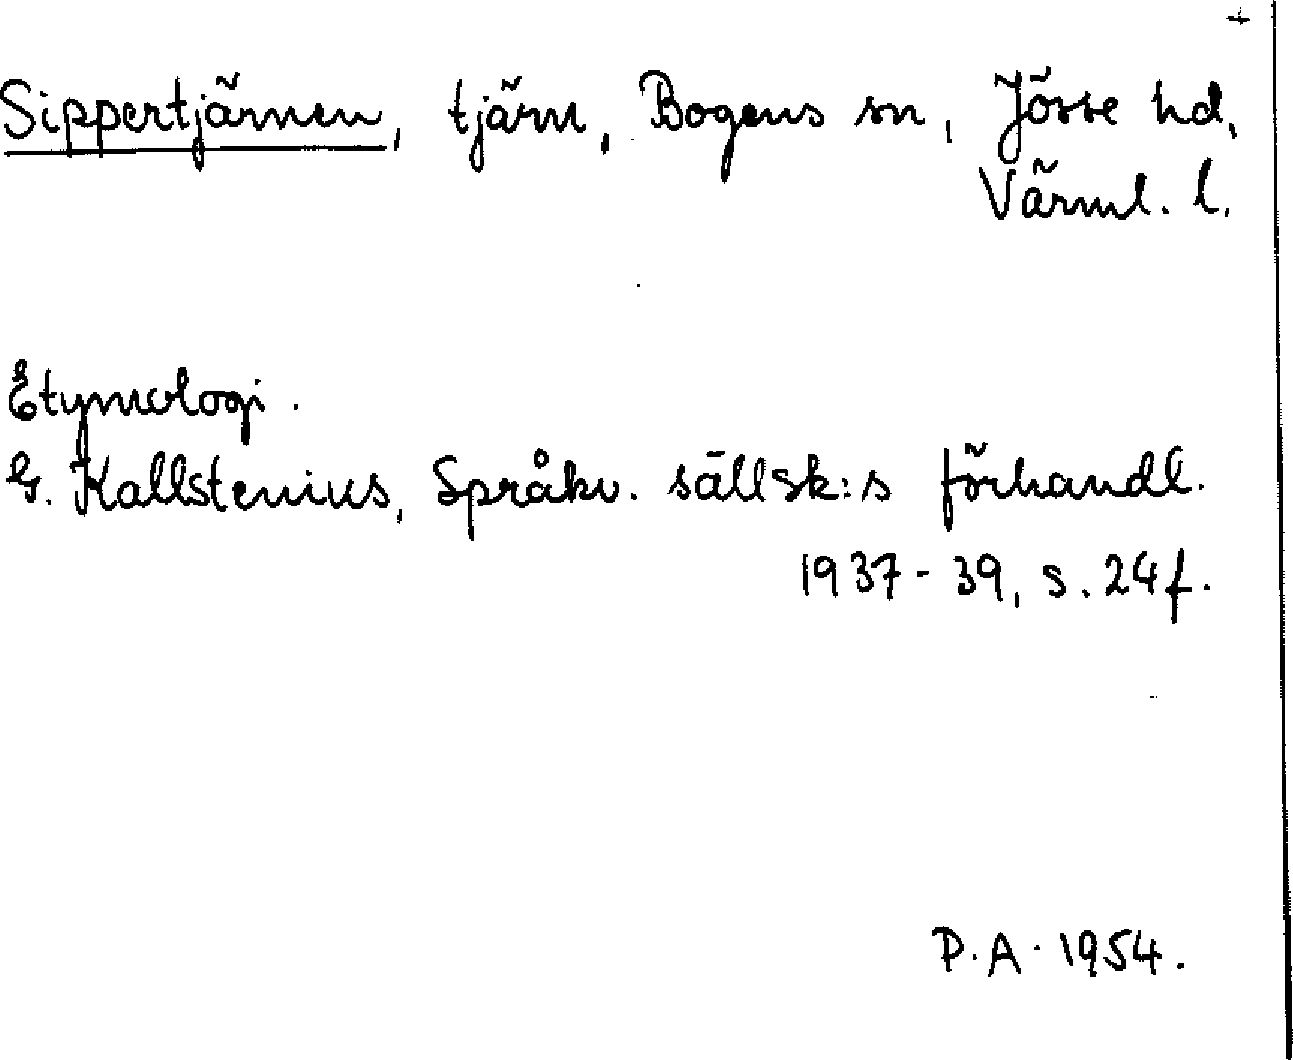 Sippertjärnen, tjärn, Bogens sn, Jösse hd,
Värml. l.
Etymologi.
G. Kallstenius, Språkv. sällsk:s förhandl.
1937-39, s. 24f.
P.A. 1954.